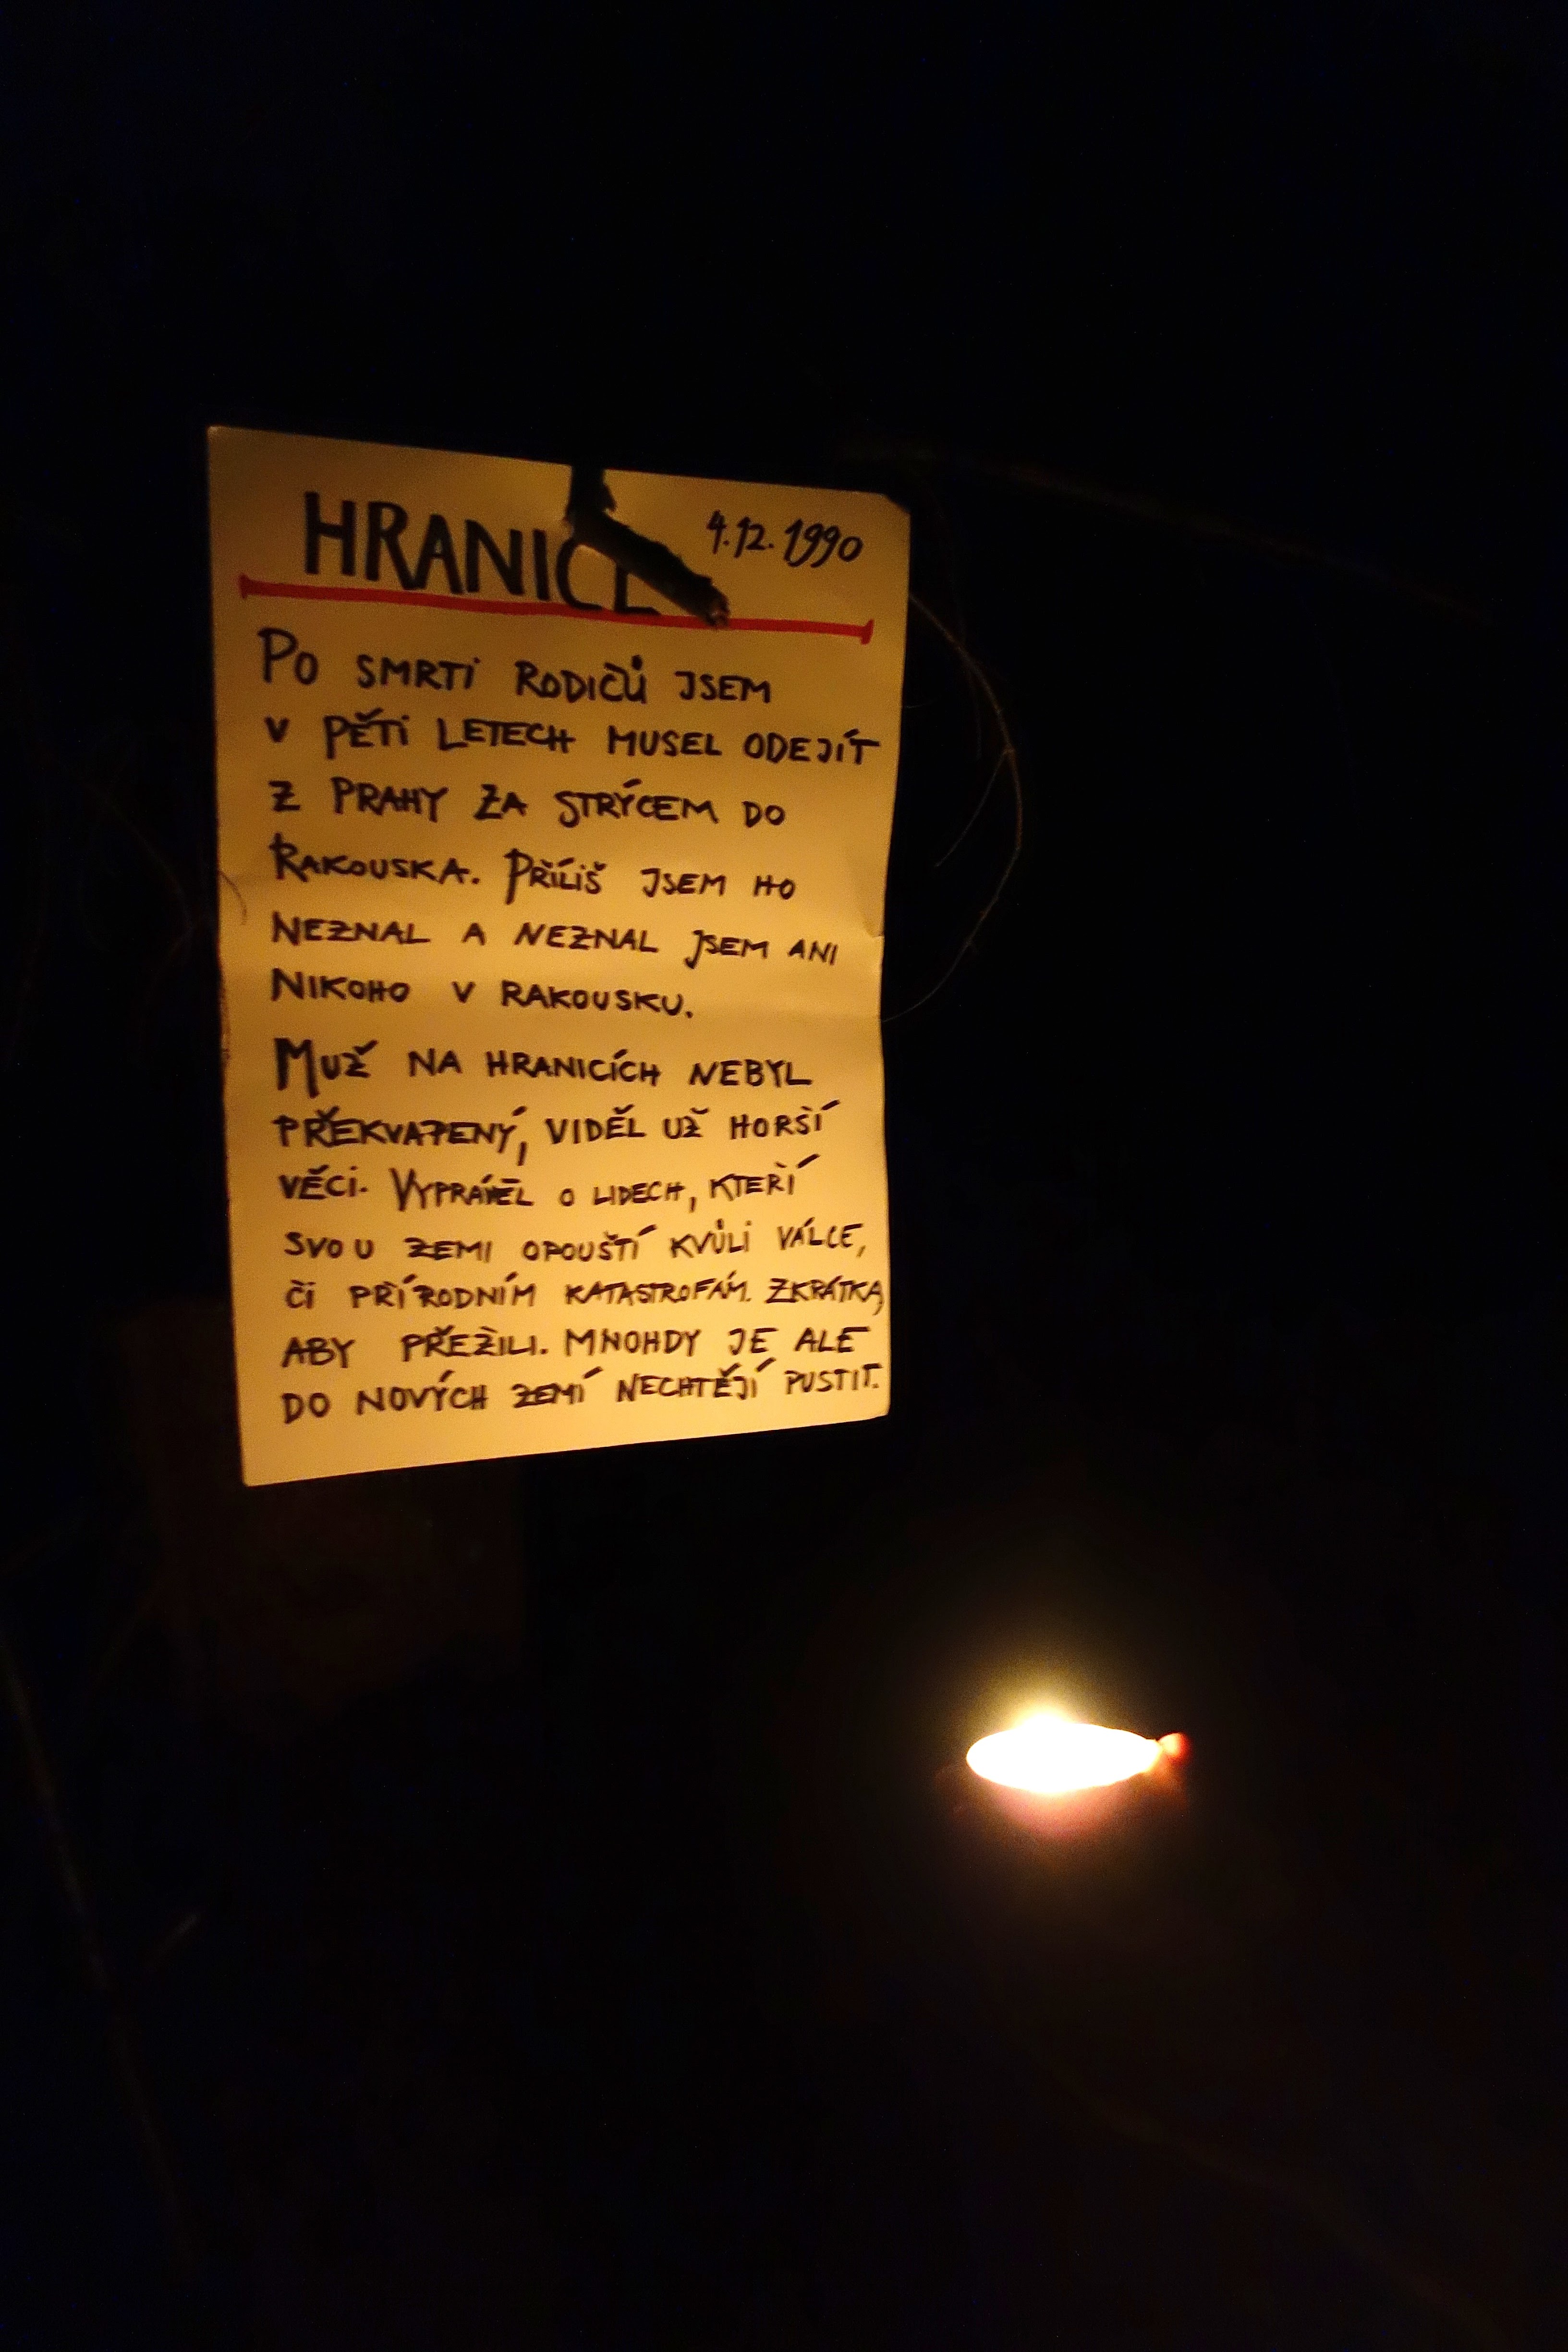 HRANICE 4.12.1990
PO SMRTI RODIČŮ JSEM
V PĚTI LETECH MUSEL ODEJÍT
Z PRAHY ZA STRÝCEM DO
RAKOUSKA. PŘÍLIŠ JSEM HO
NEZNAL A NEZNAL JSEM ANI
NIKOHO V RAKOUSKU.
MUŽ NA HRANICÍCH NEBYL
PŘEKVAPENÝ, VIDĚL UŽ HORŠÍ
VĚCI. VYPRÁVĚL O LIDECH, KTEŘÍ
SVOU ZEMI OPOUŠTÍ KVŮLI VÁLCE,
ČI PŘÍRODNÍM KATASTROFÁM. ZKRÁTKA,
ABY PŘEŽILI. MNOHDY JE ALE
DO NOVÝCH ZEMÍ NECHTĚJÍ PUSTIT.